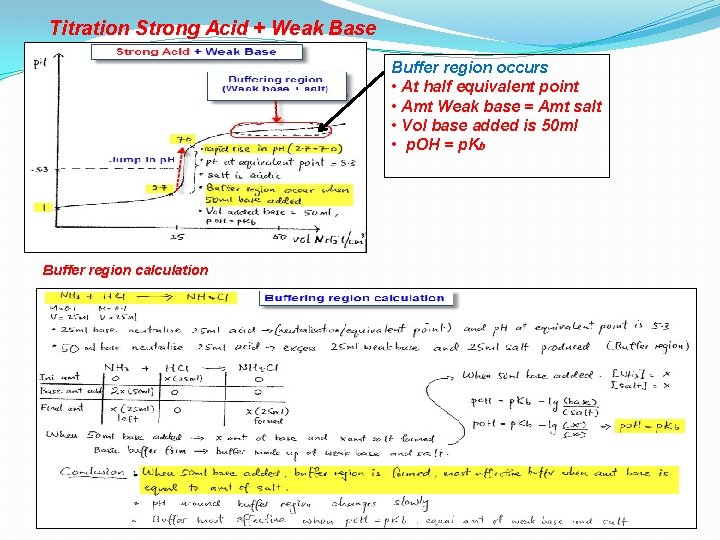 Titration Strong Acid + Weak Base
Strong Acid + Weak Base
pH
Buffering region
(Weak base + salt)
7.0
Jump in pH
• rapid rise in pH (2.7 - 7.0)
• pH at equivalent point = 5.3
• salt is acidic
• Buffer region occur when
50ml base added
• Vol added base = 50ml,
pOH = pKb
.53
2.7
1
25
50
vol NH3 (/cm3
Buffer region occurs
• At half equivalent point
• Amt Weak base = Amt salt
• Vol base added is 50ml
• pOH = pKb
Buffer region calculation
Buffering region calculation
NH3 + HCl → NH4Cl
M=0.1 M=0.1
V=25ml V=25ml
• 25ml base neutralise 25ml acid → (neutralisation/equivalent point) and pH at equivalent point is 5.3
• 50ml base neutralise 25ml acid → excess 25ml weak base and 25ml salt produced (Buffer region)
NH3 + HCl → NH4Cl
Ini amt 0 x(25ml) 0
Base amt add 2x(50ml) 0 0
Final amt x(25ml) left 0 x(25ml) formed
When 50ml base added. [NH3] = x
[salt] = x
pOH = pKb - lg (base)/(salt)
pOH = pKb - lg (x)/(x) → pOH = pKb
When 50ml base added → x amt of base and x amt salt formed
Basic buffer form → buffer made up of weak base and salt.
Conclusion : • When 50ml base added, buffer region is formed, most effective buffer when amt base is
equal to amt of salt
• pH around buffer region changes slowly
• Buffer most effective when pOH = pKb, equal amt of weak base and salt